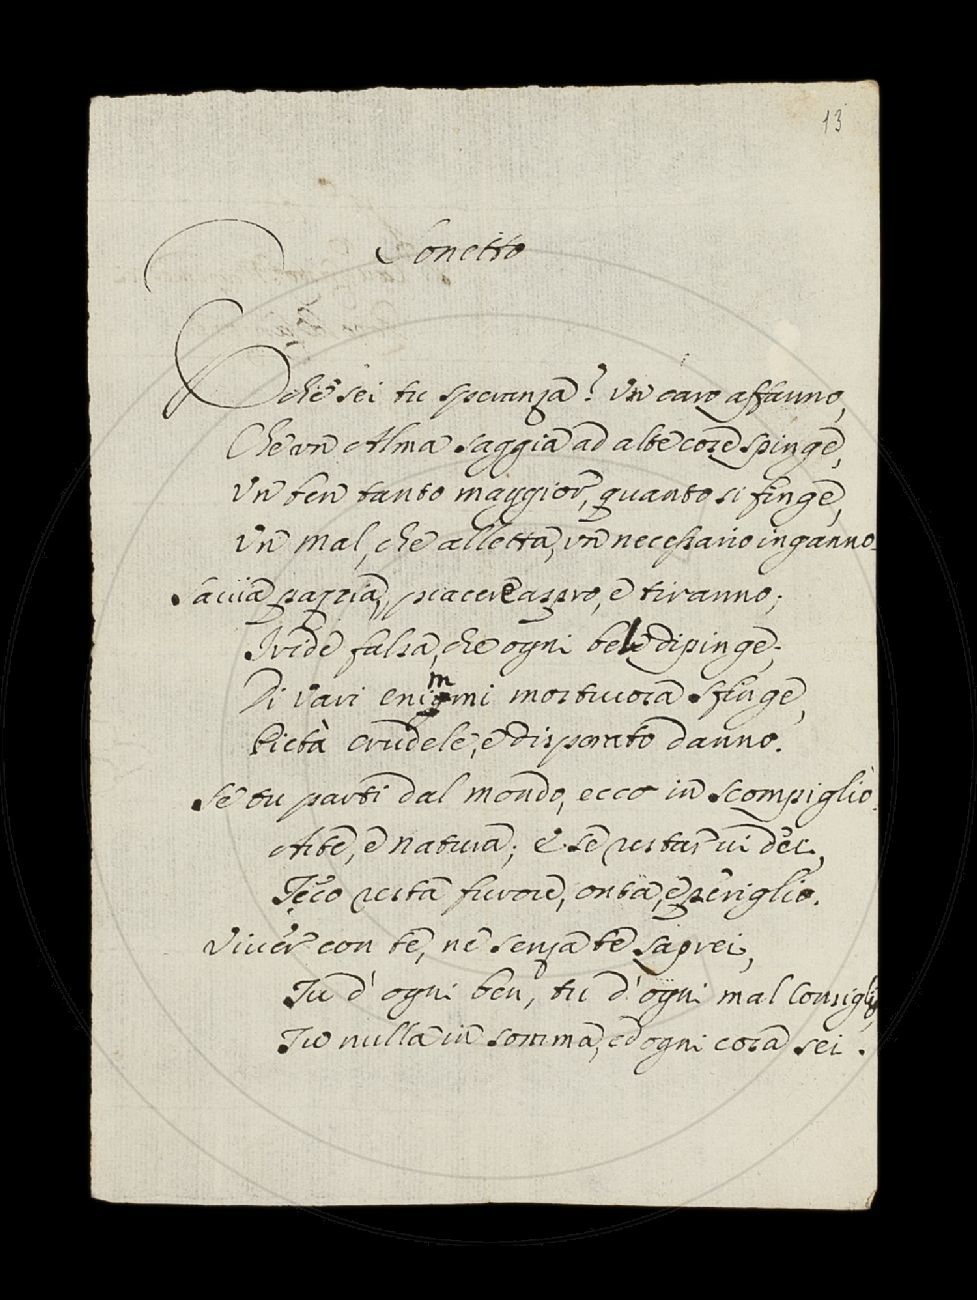 13
Sonetto
O chè sei tu speranza? Un caro affanno,
Che un Alma saggia ad alte cose spinge,
Un ben tanto maggior, quanto si finge,
Un mal, che alletta, un necessario inganno.
Saviia pazzia, piacere aspro, e tiranno;
Iride falsa, che ogni bel dipinge.
Di vari enimmi mostruosa sfinge,
Pietà crudele, e disperato danno.
Se tu parti dal mondo, ecco in scompiglio
Arte, e natura; e se restar vi dei,
Teco resta furore, onta, e periglio.
Viver con te, ne senza te saprei,
Tu d'ogni ben, tu d'ogni mal consiglio,
Tu nulla in somma, ed ogni cosa sei.